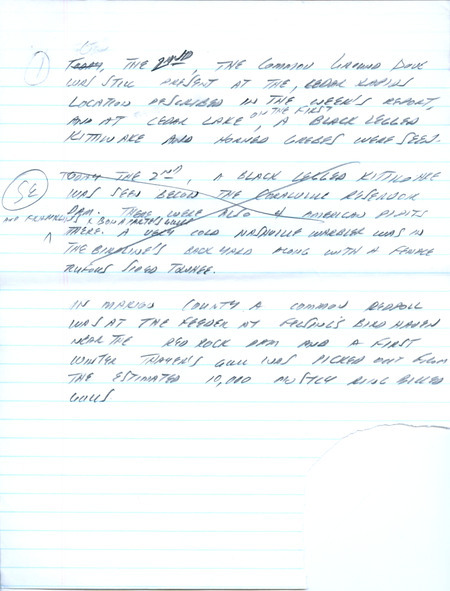 1 Today, the 2nd, the Common Ground Dove
was still present at the, Cedar Rapids
location described in the week's report,
and at Cedar Lake, on the first a black legged
kittiwake and horned grebes were seen.
SE Today the 2nd, a black legged kittiwake
was seen below the Coralville Reservoir
dam. There were also 4 American pipits
& Bonapartes gulls
there. A very cold Nashville warbler was in
the Birdline's back yard along with a female
rufous sided towhee.
In Marion County a common redpoll
was at the feeder at Bird Haven
near the Red Rock dam and a first
winter Thayer's gull was picked out from
the estimated 10,000 mostly ring billed
gulls